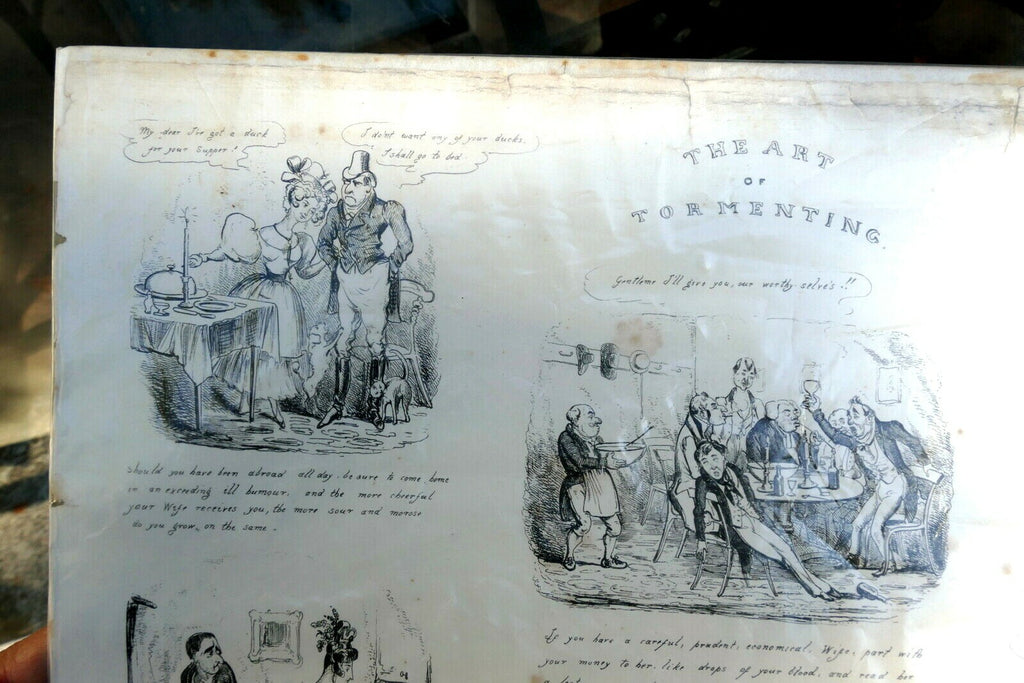 My dear I've got a duck
for your Supper!
I don't want any of your ducks.
I shall go to bed
Should you have been abroad all day, be sure to come home
in an exceeding ill humour, and the more cheerful
your Wife receives you, the more sour and morose
do you grow, on the same.
THE ART
OF
TORMENTING.
Gentlems I'll give you, our worthy selve's!!
If you have a careful, prudent, economical, Wife, part with
your money to her, like drops of your blood, and read her